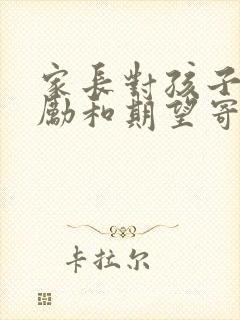 家長對孩子
勵和期望寄
卡拉尔